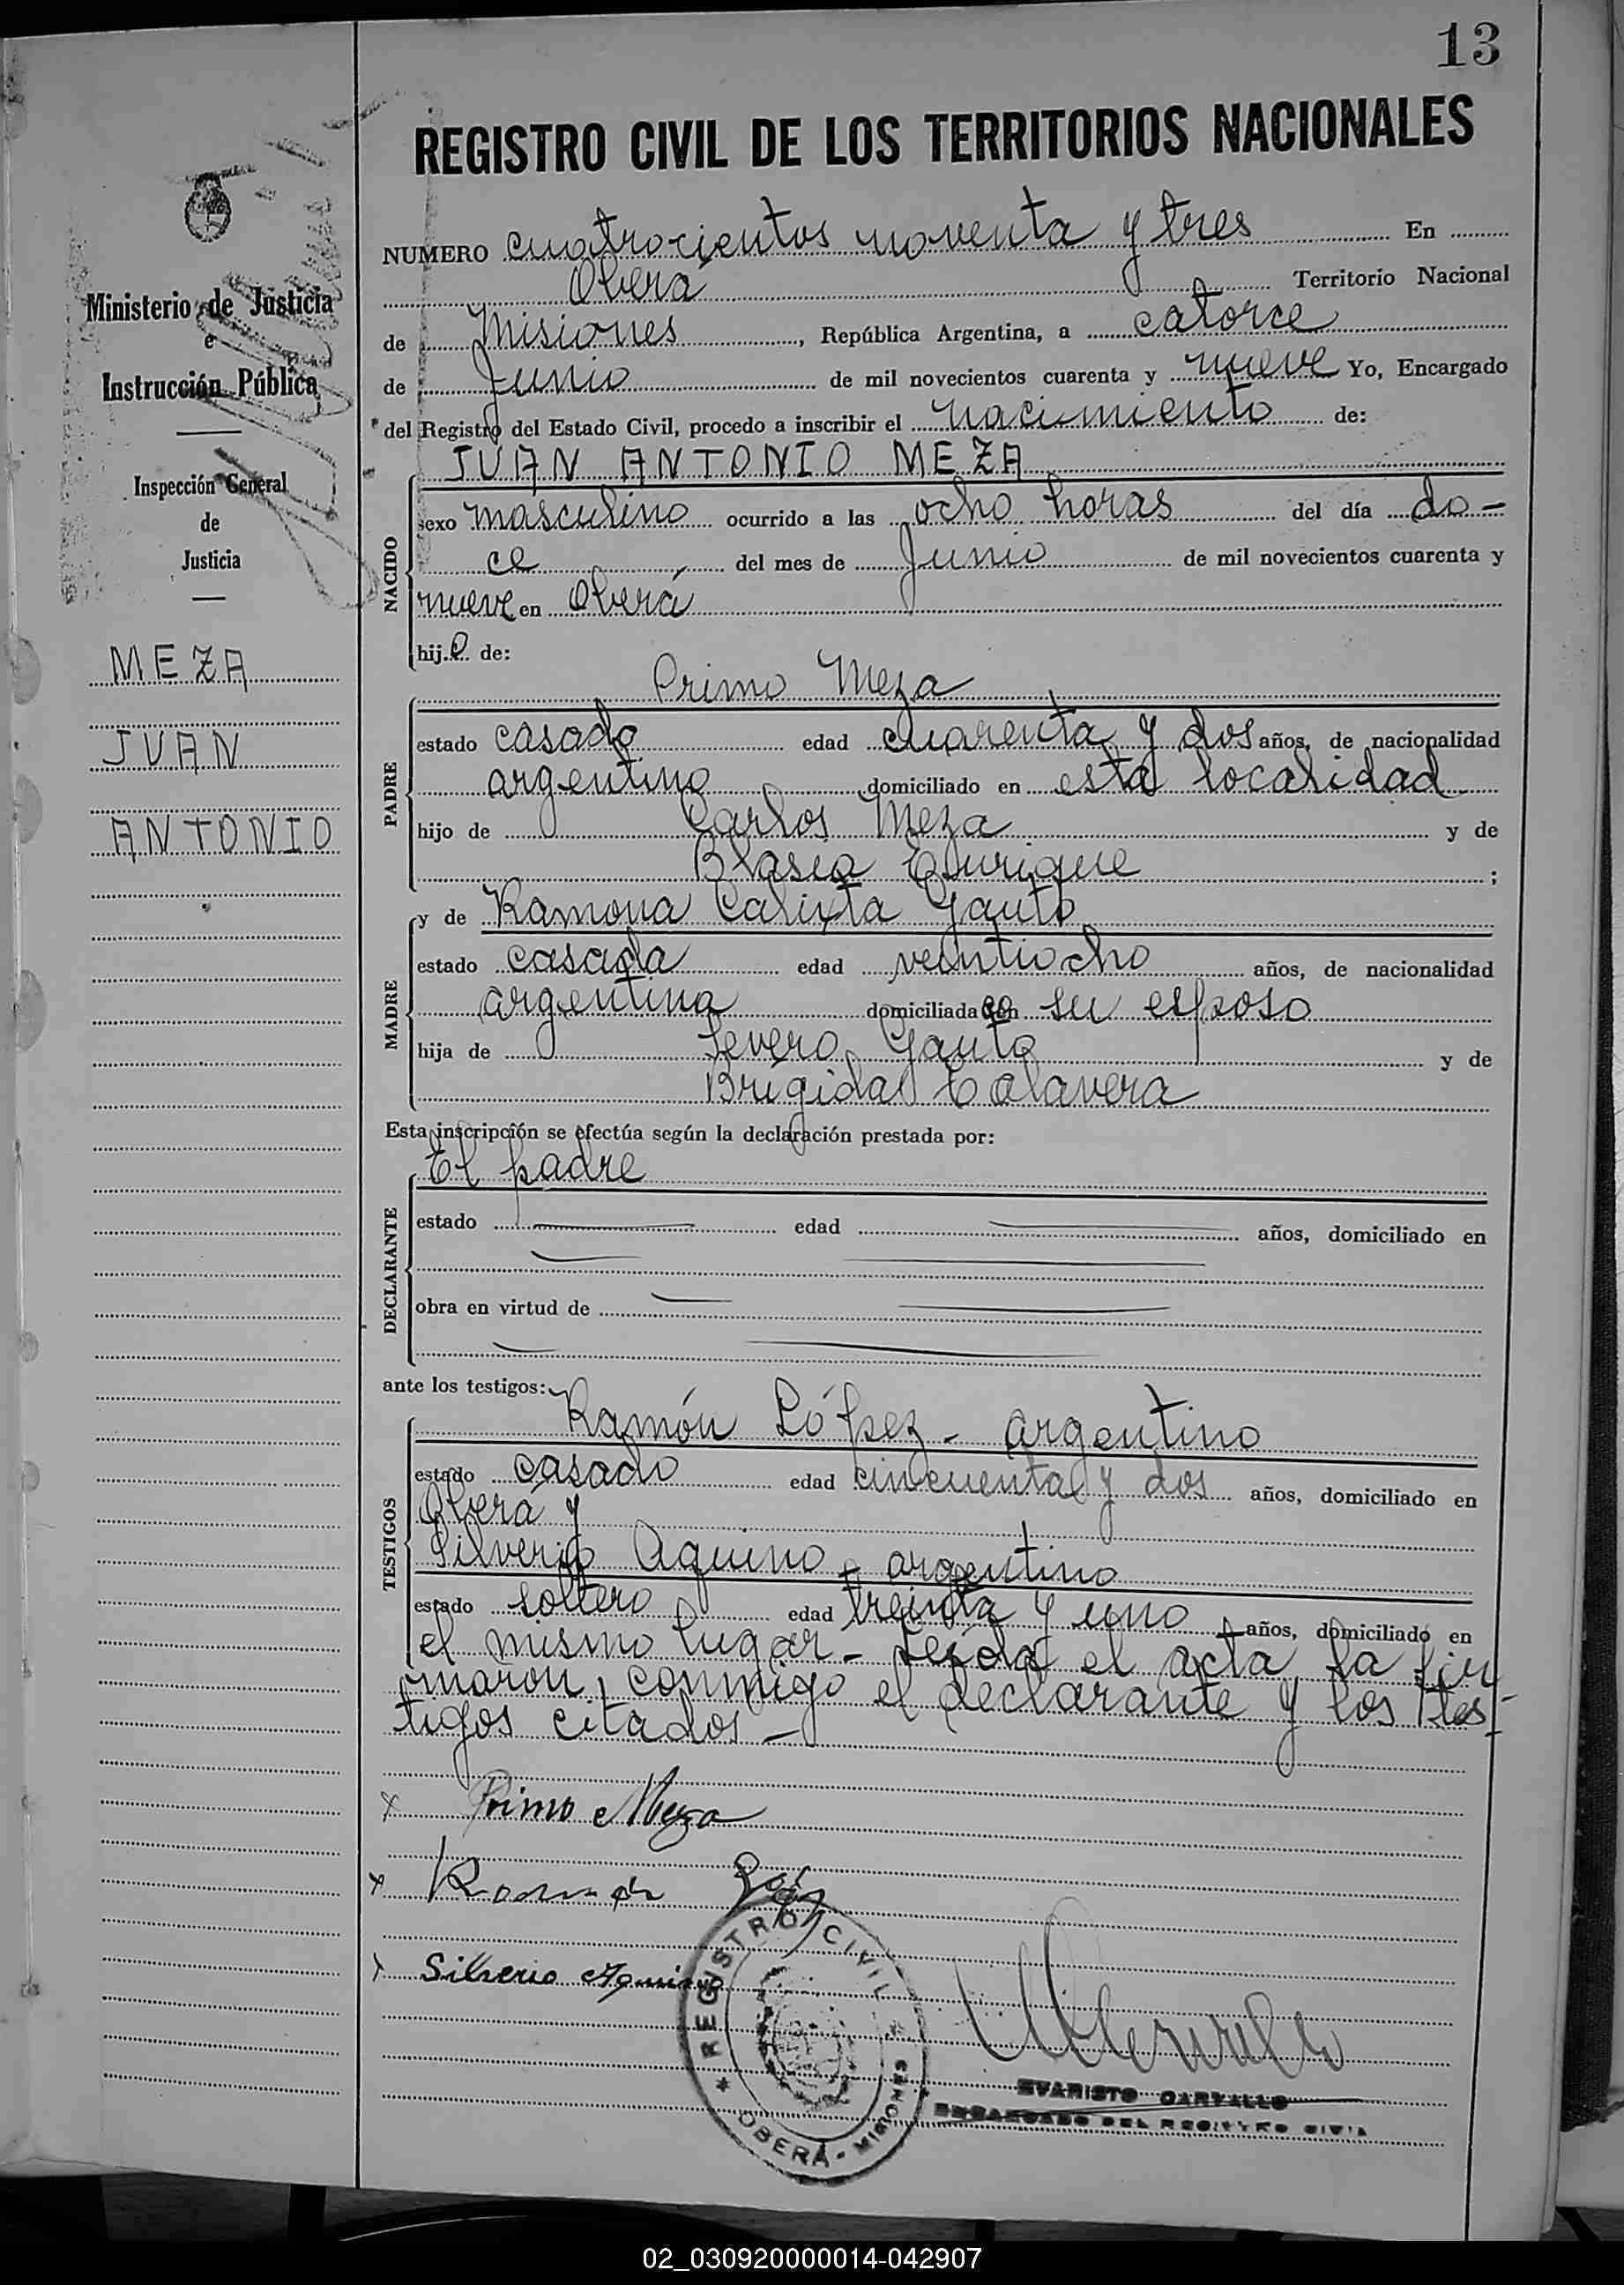 13
REGISTRO CIVIL DE LOS TERRITORIOS NACIONALES
Ministerio de Justicia
e
Instrucción Pública
Inspección General
de
Justicia
MEZA
JUAN
ANTONIO
NUMERO cuatrocientos noventa y tres En
Oberá Territorio Nacional
de Misiones, República Argentina, a catorce
de Junio de mil novecientos cuarenta y nueve Yo, Encargado
del Registro del Estado Civil, procedo a inscribir el nacimiento de:
JUAN ANTONIO MEZA
NACIDO
sexo masculino ocurrido a las ocho horas del día do-
ce del mes de Junio de mil novecientos cuarenta y
nueve en Oberá
hijo de:
Primo Meza
PADRE
estado casado edad cuarenta y dos años, de nacionalidad
argentino domiciliado en esta localidad
hijo de Carlos Meza y de
Blasia Enrique;
MADRE
y de Ramona Calixta Gauto
estado casada edad veintiocho años, de nacionalidad
argentina domiciliada con su esposo
hija de Severo Gauto y de
Brígida Talavera
Esta inscripción se efectúa según la declaración prestada por:
El padre
DECLARANTE
estado edad años, domiciliado en
obra en virtud de
ante los testigos:
Ramón López - argentino
TESTIGOS
estado casado edad cincuenta y dos años, domiciliado en
Oberá y
Silverio Aquino - argentino
estado soltero edad treinta y uno años, domiciliado en
el mismo lugar - Leída el acta, la fir
maron, conmigo el declarante y los tes-
tigos citados -
x Primo Meza
x Ramón
x Silverio Aquino
REGISTRO CIVIL
* OBERÁ - MISIONES
EVARISTO CARVALLO
ENCARGADO DEL REGISTRO CIVIL
02_030920000014-042907